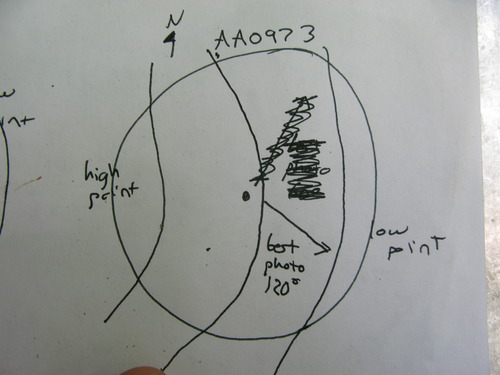 N
AA0973
high
point
low
point
best
photo
120°